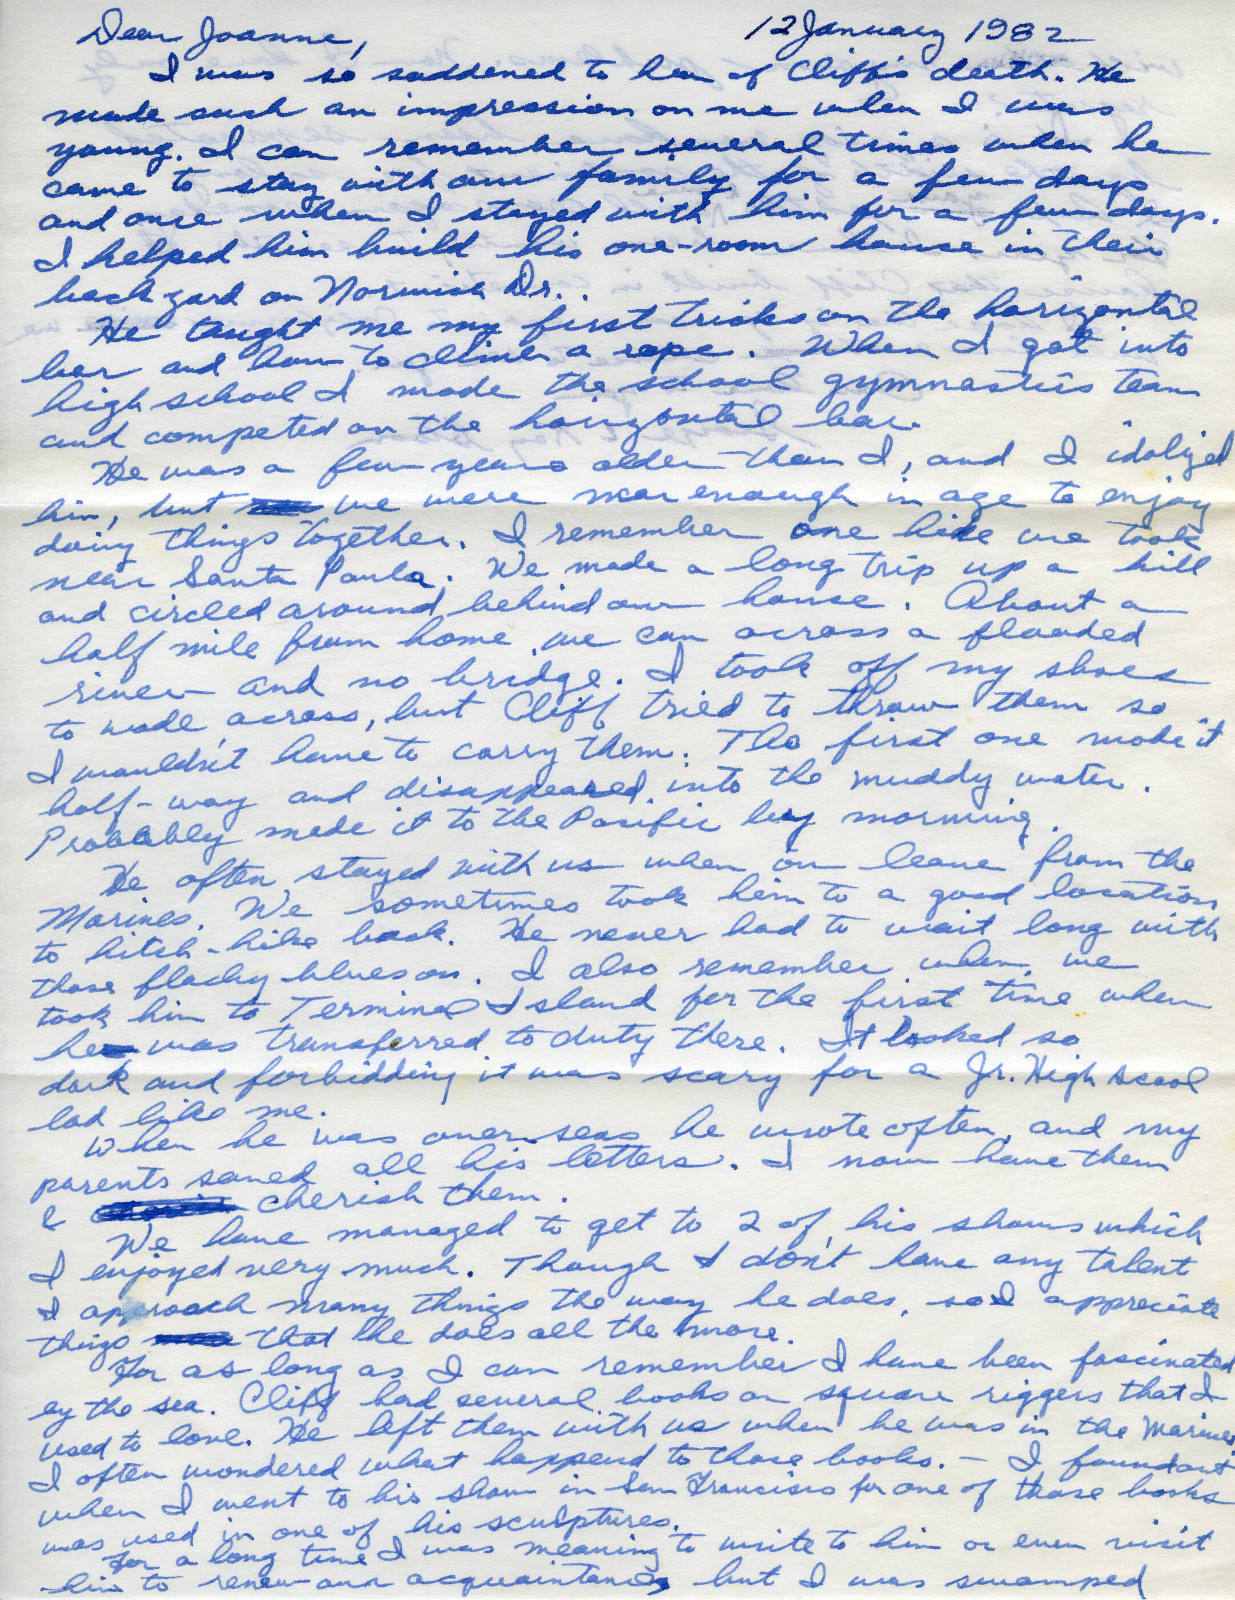 Dear Joanne, 12 January 1982
I was so saddened to hear of Cliff's death. He
made such an impression on me when I was
young. I can remember several times when he
came to stay with our family for a few days
and once when I stayed with him for a few days.
I helped him build his one-room house in their
back yard on Norwich Dr..
He taught me my first tricks on the horizontal
bar and how to climb a rope. When I got into
high school I made the school gymnastics team
and competed on the horizontal bar.
He was a few years older than I, and I idolized
him, but we were near enough in age to enjoy
doing things together. I remember one hike we took
near Santa Paula. We made a long trip up a hill
and circled around behind our house. About a
half mile from home we can across a flooded
river and no bridge. I took off my shoes
to wade across, but Cliff tried to throw them so
I wouldn't have to carry them. The first one made it
half-way and disappeared into the muddy water.
Probably made it to the Pacific by morning.
He often stayed with us when on leave from the
Marines. We sometimes took him to a good location
to hitch-hike back. He never had to wait long with
those flashy blues on. I also remember when we
took him to Terminal Island for the first time when
he was transferred to duty there. It looked so
dark and forbidding it was scary for a Jr. High scool
lad like me.
When he was overseas he wrote often, and my
parents saved all his letters. I now have them
& cherish them.
We have managed to get to 2 of his shows which
I enjoyed very much. Though I don't have any talent
I approach many things the way he does, so I appreciate
things that he does all the more.
For as long as I can remember I have been fascinated
by the sea. Cliff had several books on square riggers that I
used to love. He left them with us when he was in the Marines.
I often wondered what happend to those books. - I found out
when I went to his show in San Francisco for one of those books
was used in one of his sculptures.
For a long time I was meaning to write to him or even visit
him to renew our acquaintance, but I was swamped